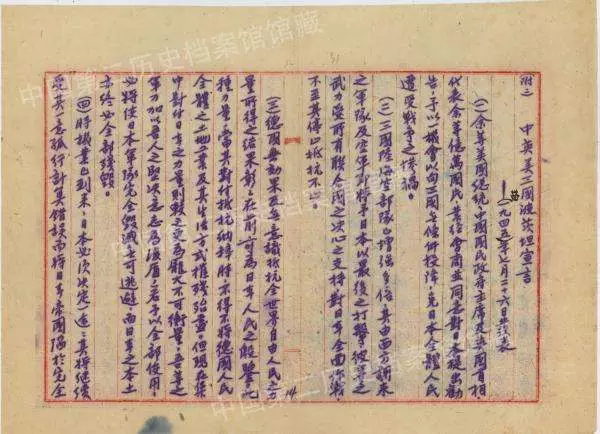 中国第二历史档案馆馆藏
附二 中英美三國波茨坦宣言
（一九四五年七月二十六日發表）
（一）余等美國總統、中國國民政府主席及英國首相，
代表余等億萬國民，業經會商並同意對日本提出勸
告，予以機會以向三國無條件投降，免日本全體人民
遭受戰爭之慘禍。
（二）三國陸海空部隊已增強多倍，其由西方調來
之軍隊及空軍即將予日本以最後之打擊，彼等之
武力受所有聯人民之決心之支持對日本全面作戰，
不至其停止抵抗不止。
14
（三）德國無効果及無意識抵抗全世界自由人民之力
量所得之結果，彰彰在前，可為日本人民之殷鑒。此
種力量當其對付抵抗納粹時，不得不將德國人民
全體之土地工業及其生活方式摧殘殆盡。但現在集
中對付日本之力量則較之更為龐大不可衡量。吾等之
軍力加以吾人之堅決意志為後盾，若予以全部使用，
必將使日本軍隊完全毀滅，無可逃避，而日本之本土
亦終必全部殘毀。
（四）時機業已到來，日本必須決定一途：其將繼續
受其一意孤行計算錯誤而將日本帝國陷於完全